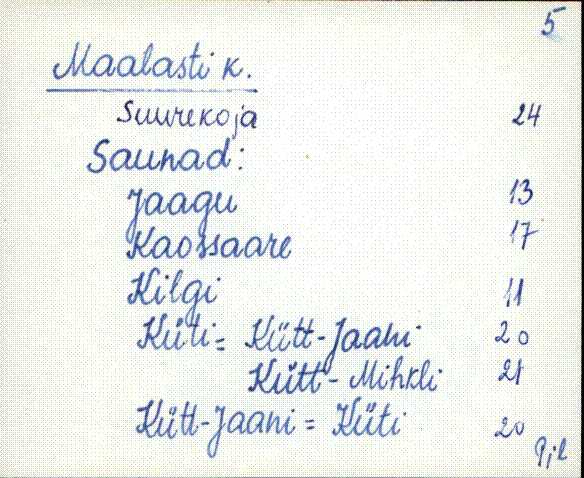 5
Maalasti k.
Suurekoja 24
Saunad:
Jaagu 13
Kaossaare 17
Kilgi 11
Küti = Kütt-Jaani 20
Kütt-Mihkli 21
Kütt-Jaani = Küti 20